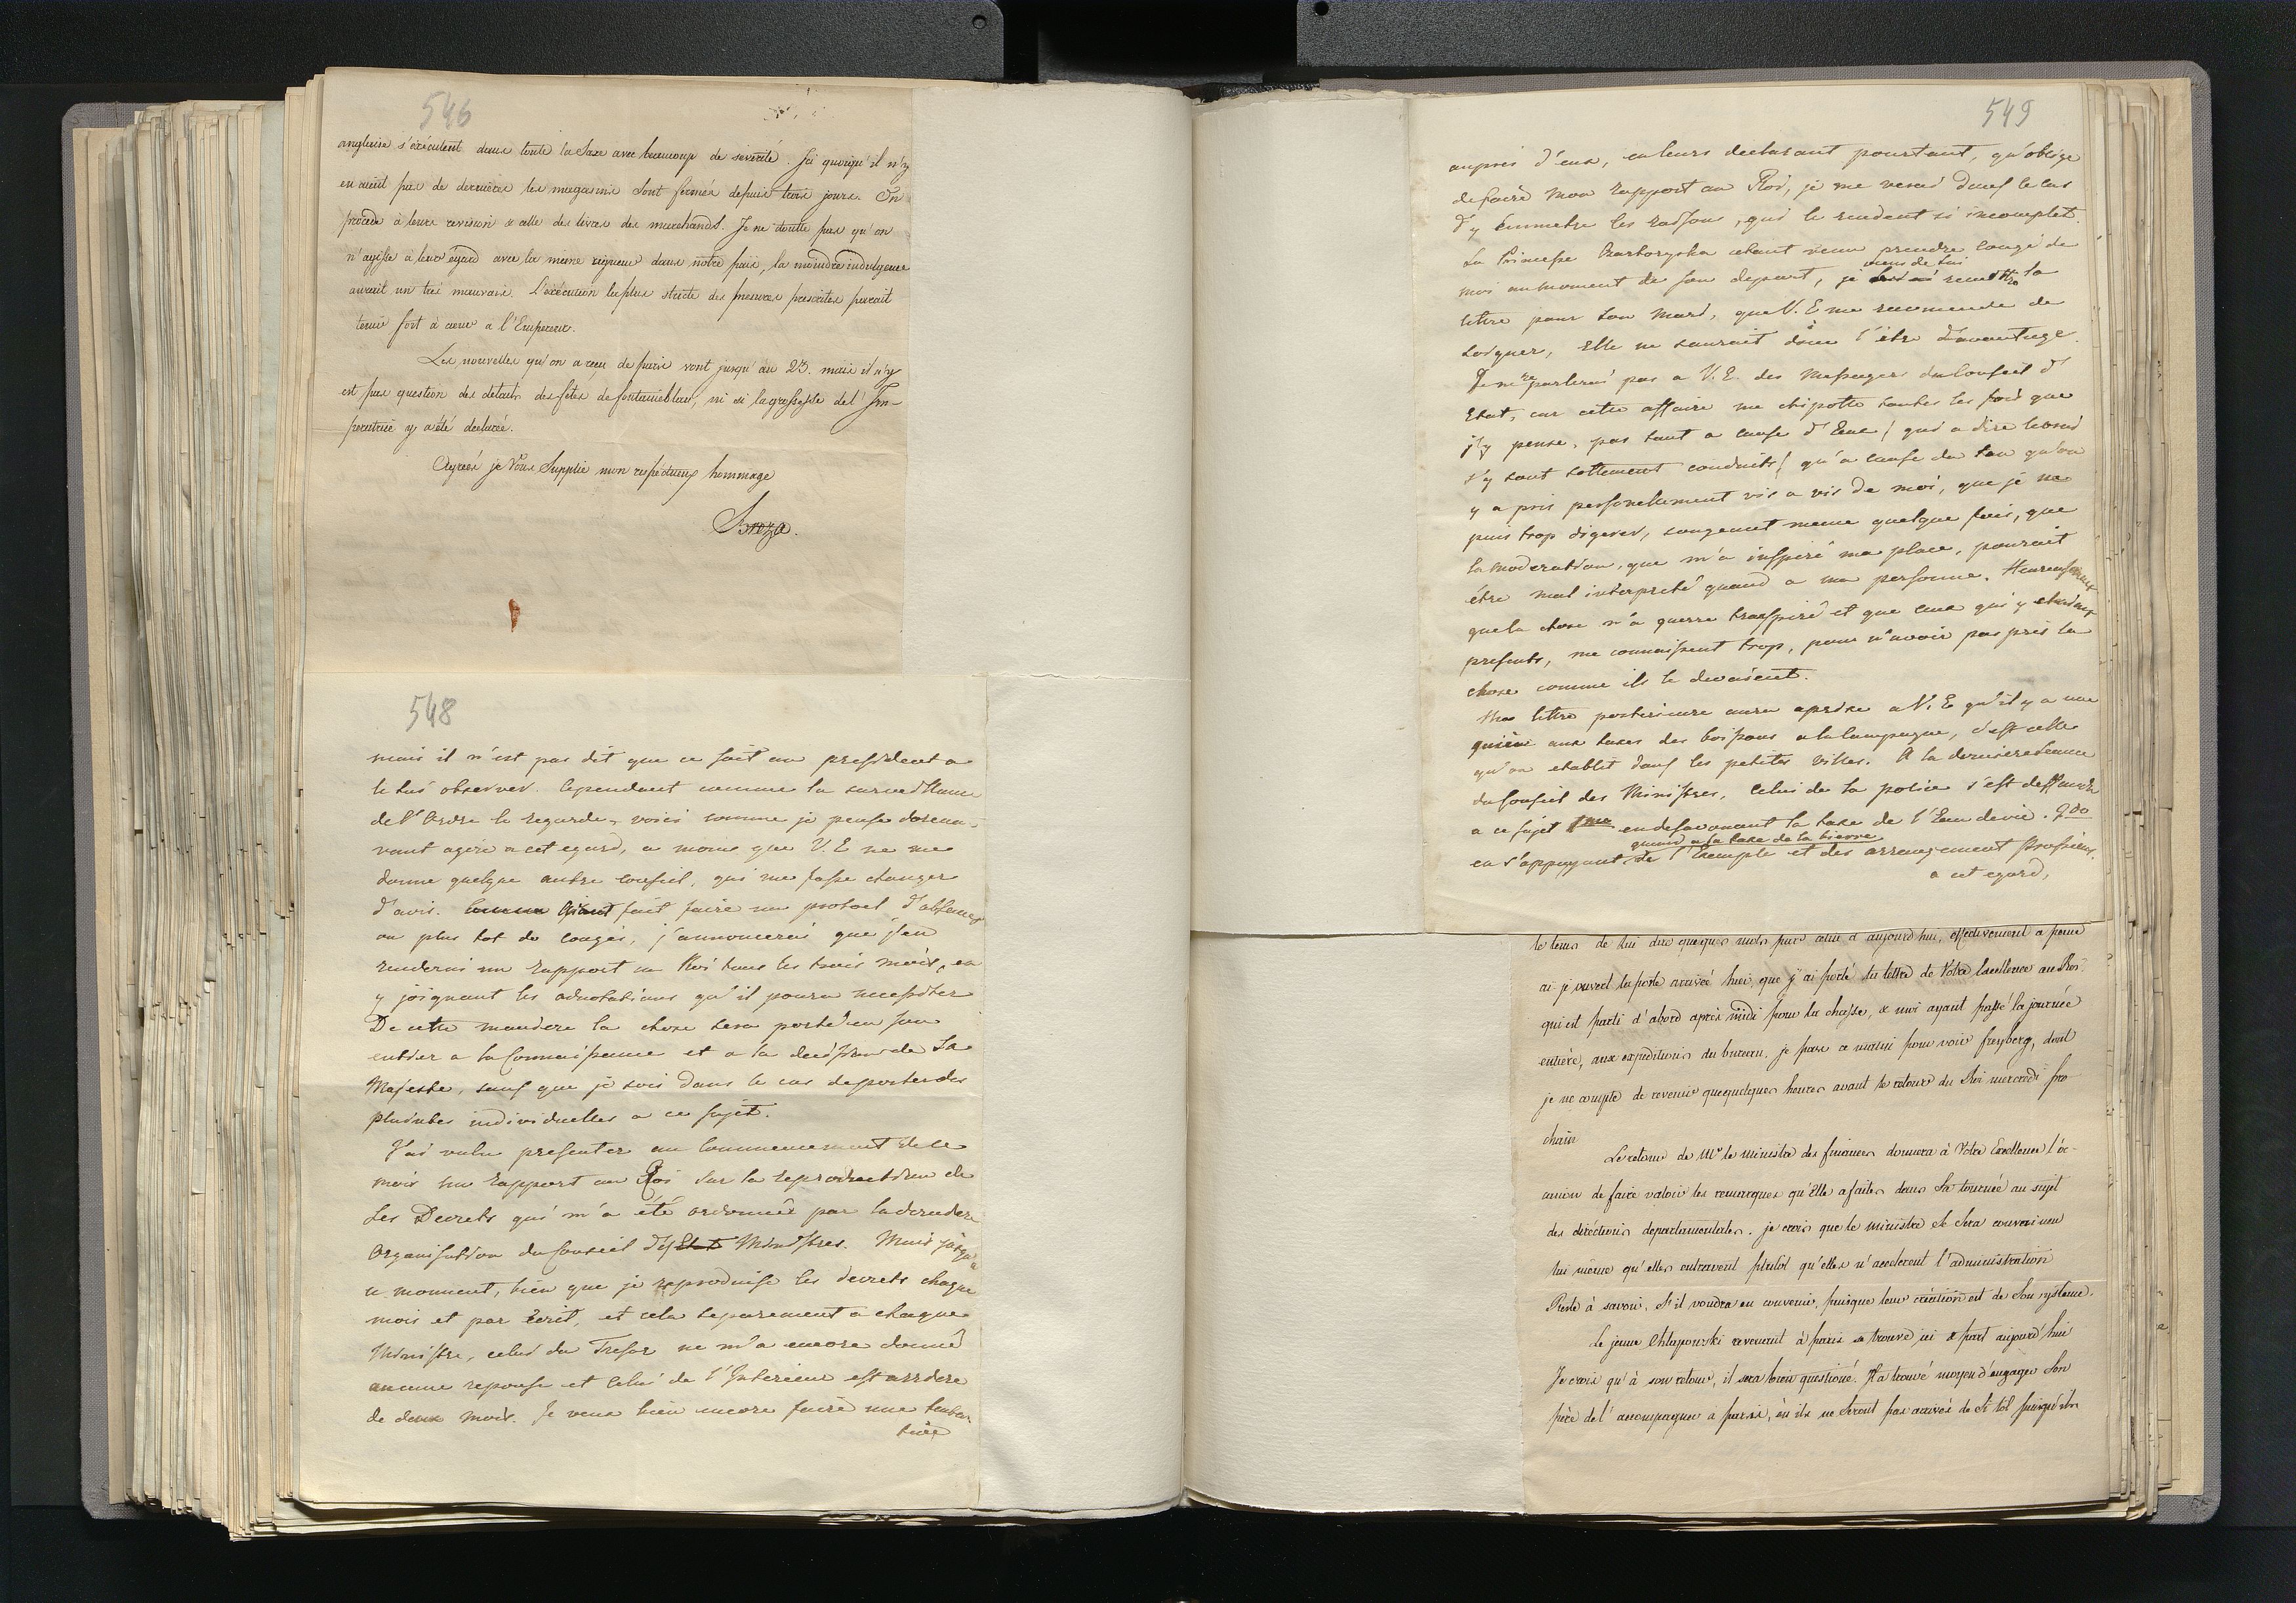 546
anglaise s'exécutent dans toute la Saxe avec beaucoup de sévérité. Ici quoiqu'il n'y
en avait pas de derniéres les magasins sont fermés depuis trois jours. On
procede à leurs revision & celle des livres des marchands. Je ne doutte pas qu'on
n'agisse à leur égard avec la meme rigueur dans notre païs, la moindre indulgence
aurait un trés mauvais. L'exécution la plus stricte des mesures prescrites parait
tenir fort à coeur a l'Empereur.
Les nouvelles qu'on a reçu de paris vont jusqu'au 23. mais il n'y
est pas question des détails des fêtes de fontainebleau, ni si la grossesse de l'Im-
peratrice y a été declarée.
Agreés je Vous Supplie mon respectueux hommage
Breza.
548
mais il n'est pas dit que ce soit au president a
le lui observer. Cependant comme la surveillance
de l'Ordre le regarde, voici comme je pense dorena-
vant agir a cet egard, a moins que V. E ne me
donne quelque autre conseil, qui me fasse changer
d'avis. fait faire un protocol d'absences
ou plus tot de congés, j'annoncerai que j'en
renderai un rapport au Roi tous les trois mois, en
y joignant les adnotations qu'il poura necessiter
De cette maniere la chose sera porté en son
entier a la Connaissance et a la decission de Sa
Majeste, sauf que je sois dans le cas de porter des
plaintes individuelles a ce sujet.
J'ai voulu presenter au Commencement de ce
mois un rapport au Roi sur la reproduction de
Ses Decrets qui m'a été ordonnée par la derniere
Organisation du Conseil des Ministres. Mais jusqu'a
ce moment, bien que je reproduise les decrets chaque
mois et par Ecrit, et cela separement a chaque
Ministre, celui du Tresor ne m'a encore donné
aucune reponse et Celui de l'Interieur est arriere
de deux mois. Je veux bien encore faire une tenta-
tive
549
aupres d'eux, en leurs declarant pourtant, qu'obligé
de faire mon rapport au Roi, je me verai dans le cas
d'y émmetre les raisons, qui le rendent si incomplet.
La Princesse Czartoryska etant venu prendre congé de
moi au moment de son depart, je viens de lui remettre la
lettre pour son mari, que V. E me recomende de
soigner, Elle ne saurait donc l'être d'avantage.
Je ne parlerai pas a V. E. des Messages du Conseil d'
Etat, car cette affaire me chipotte toutes les fois que
j'y pense, pas tant a cause d'Eux (qui a dire le vrai
s'y sont sottement conduits) qu'a cause du ton qu'on
y a pris personellement vis a vis de moi, que je ne
puis trop digerer, songeant meme quelque fois, que
la moderation, que m'a inspiré ma place, pourait
être mal interpreté quand a ma personne. Heureusement
que la chose n'a guerre transpiré et que ceux qui y etaient
presents, me connaissent trop, pour n'avoir pas pris la
chose comme ils le devaient.
Ma lettre posterieure aura apris a V. E qu'il y a une
aux taxes des boissons a la Campagne, c'est celle
qu'on etablit dans les petites villes. A la derniere seance
du Conseil des Ministres, Celui de la police s'est deffendu
a ce sujet 1mo en desavouant la taxe de l'Eau de vie. 2do
quand a la taxe de la bierre
en s'appuyant de l'Exemple et des arrangement Prussiens.
a cet egard,
le tems de lui dire quequs mots par celui d'aujourd'hui, effectivement a peine
ai-je ouvert la poste arrivée hier, que j'ai porté la lettre de Votre Excellence au Roi
qui est parti d'abord après midi pour la chasse, & moi ayant passé la journée
entière, aux expeditions du bureau. je passe ce matin pour voir freyberg, dont
je ne compte de revenir quequelques heures avant le retour du Roi mercredi pro
chain
Le retour de Mr le Ministre des finances donnera à Votre Excellence l'oc-
casion de faire valoir les remarques qu'Elle a faites dans Sa tournée au sujet
des diréctions departamentales. je crois que le ministre se sera convaincu
lui même qu'elles entravent plutôt qu'elles n'accelerent l'administration
Reste à savoir, s'il voudra en convenir, puisque leur création est de Son systeme.
Le jeune Chlapowski revenant à paris se trouve ici & part aujourd'hui
Je crois qu'à son retour, il sera bien questioné. Il a trouvé moyen d'engager Son
père de l'accompagner a paris, où ils ne seront pas arrivés de si tôt puisqu'ils